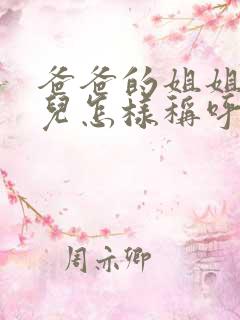 爸爸的姐姐
兒怎樣稱呼
周亦卿